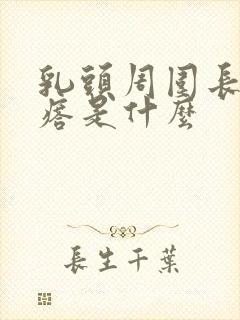 乳頭周圍長
痦是什麼
長生千葉